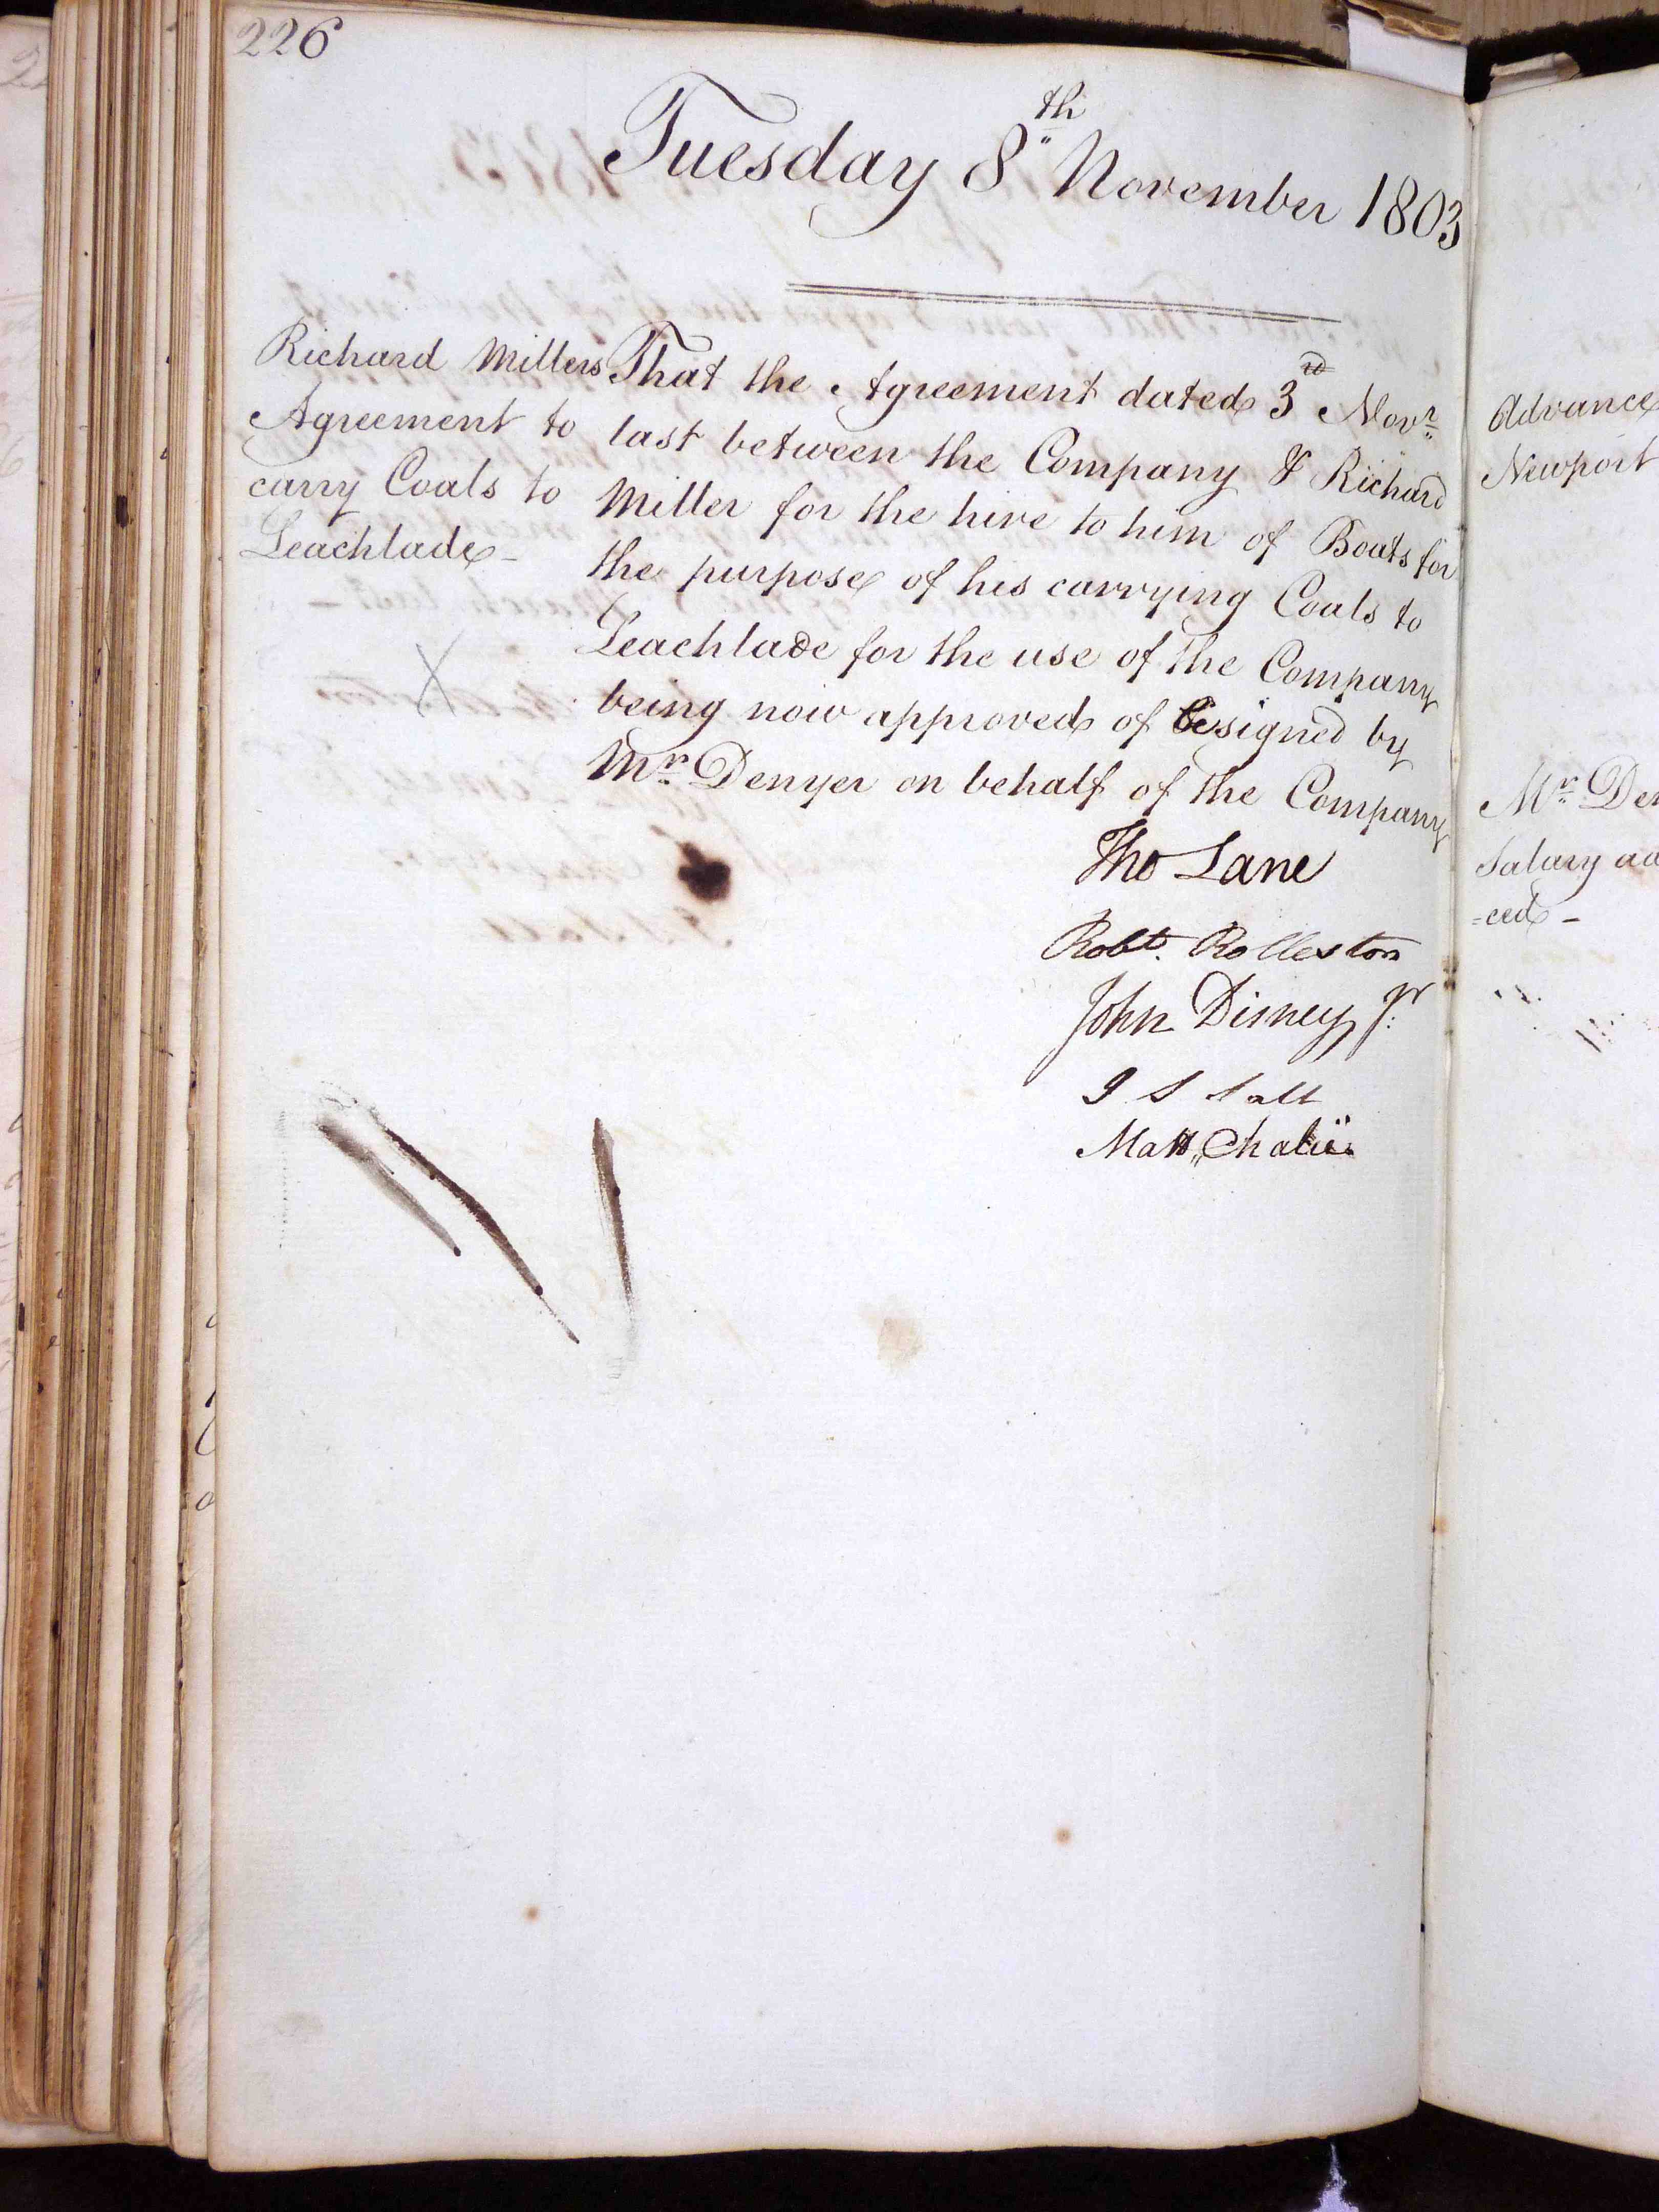 226
Tuesday 8th November 1803
Richard Millers
Agreement to
carry Coals to
Leachlade -
That the Agreement dated 3rd Novr
last between the Company & Richard
Miller for the hire to him of Boats for
the purpose of his carrying Coals to
Leachlade for the use of the Company
being now approved of be signed by
Mr Denyer on behalf of the Company
Tho Lane
Robt. Rolleston
John Disney Jr
J S Salt
Matt, Chalié
Advance
Newport
Mr Den
Salary ad
=ced -